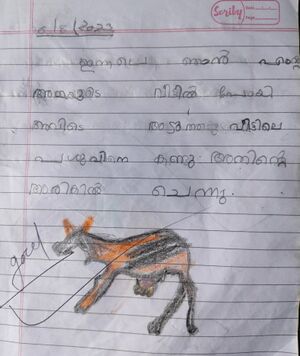 Scriby
Date
Page
6/8/2023
ഇന്നലെ ഞാൻ എന്റെ
അമ്മയുടെ വീട്ടിൽ പോയി
അവിടെ അടുത്തുള്ള വീട്ടിലെ
പശുവിനെ കണ്ടു. അതിന്റെ
അരികിൽ ചെന്നു.
good